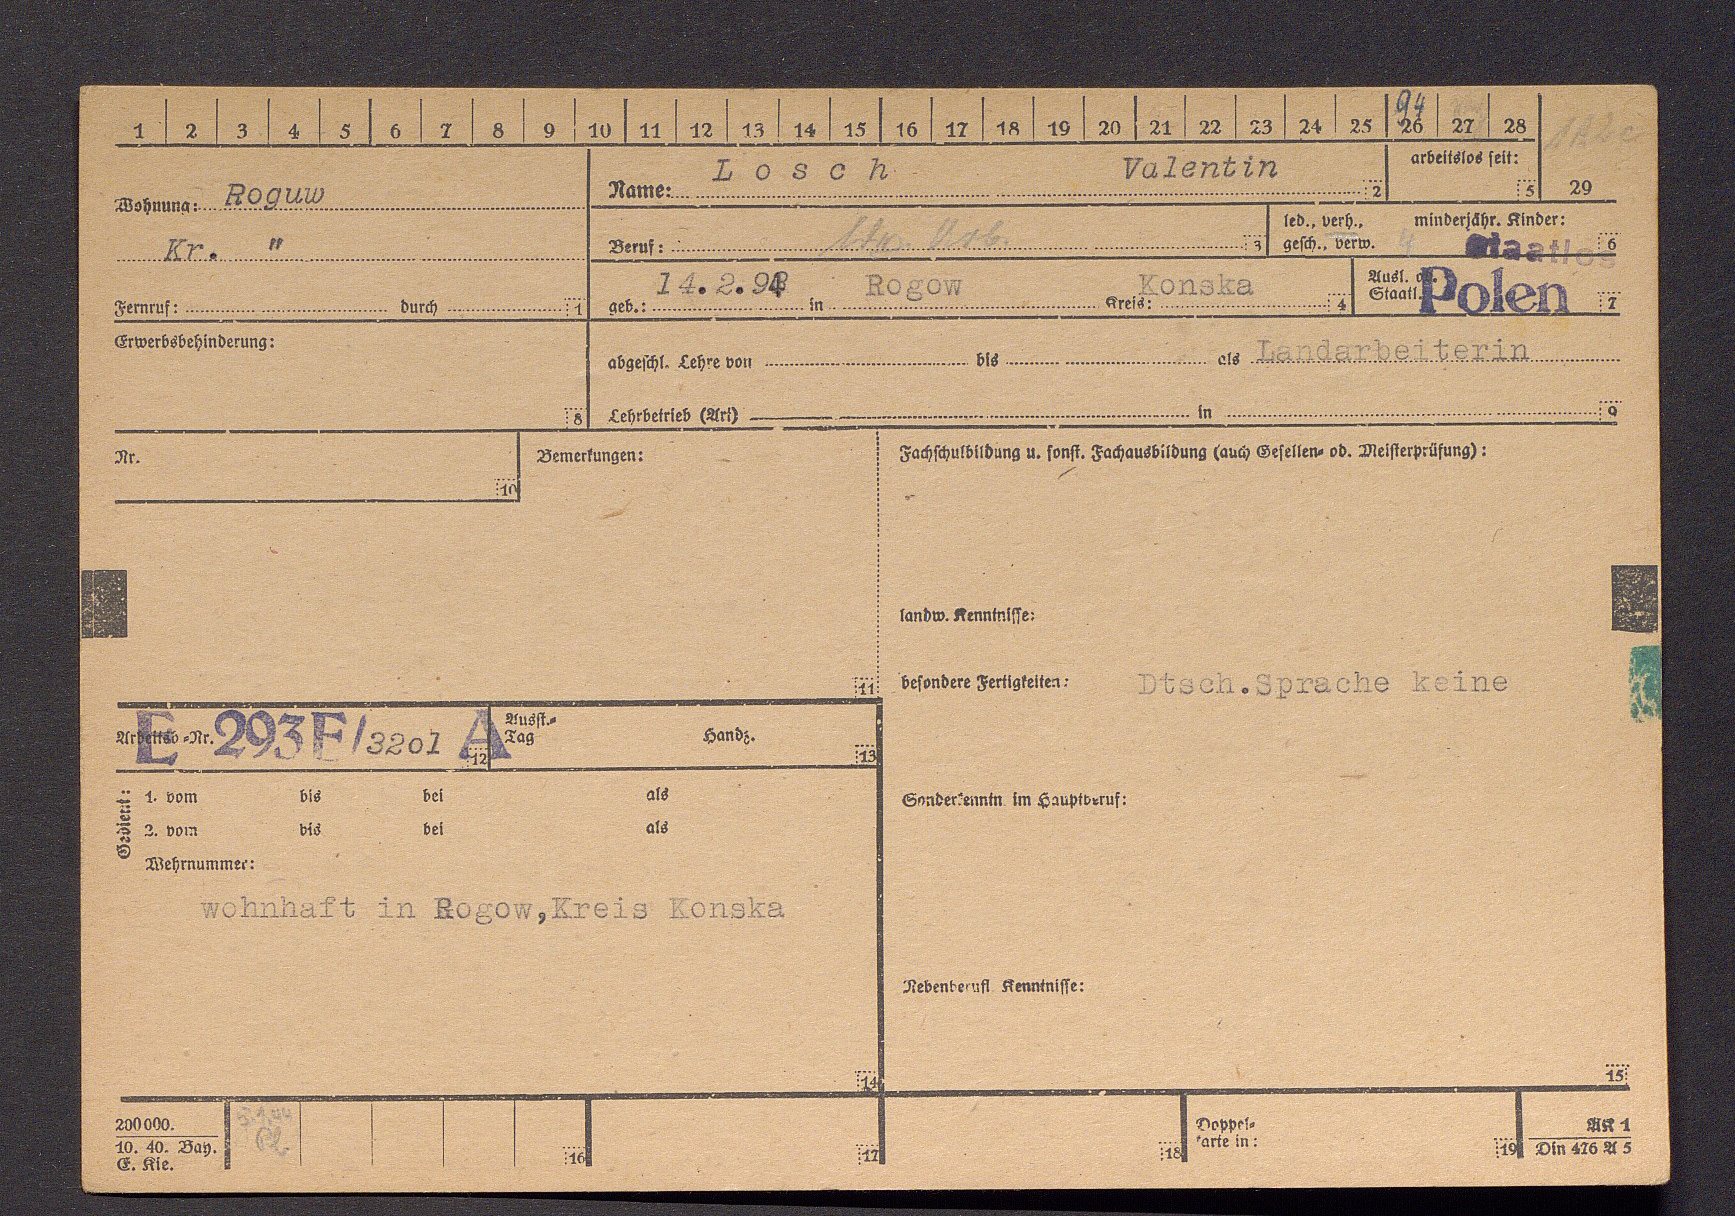 1 2 3 4 5 6 7 8 9 10 11 12 13 14 15 16 17 18 19 20 21 22 23 24 25 26 27 28
94
Wohnung: Roguw
Kr. "
Fernruf: durch 1
Name: Losch Valentin 2
arbeitslos seit: 5
29
Beruf: 3
led., verh., gesch., verw.
minderjähr. Kinder: 6
Staatlos
geb.: 14.2.94 in Rogow Kreis: Konska 4
Ausl. od. Staatl. Polen 7
Erwerbsbehinderung: 8
abgeschl. Lehre von bis als Landarbeiterin
Lehrbetrieb (Art) in 9
Nr. 10
Bemerkungen: 11
Fachschulbildung u. sonst. Fachausbildung (auch Gesellen- od. Meisterprüfung):
landw. Kenntnisse:
besondere Fertigkeiten: Dtsch.Sprache keine
Arbeitsb.-Nr. E 293F/3201 A 12
Ausst.-Tag Handz. 13
Gedient:
1. vom bis bei als
2. vom bis bei als
Wehrnummer:
wohnhaft in Rogow,Kreis Konska
14
Sonderkenntn. im Hauptberuf:
Nebenberufl. Kenntnisse:
15
200000.
10. 40. Bay.
E. Kie.
16
17
18
Doppel-
karte in: 19
AK 1
Din 476 A 5